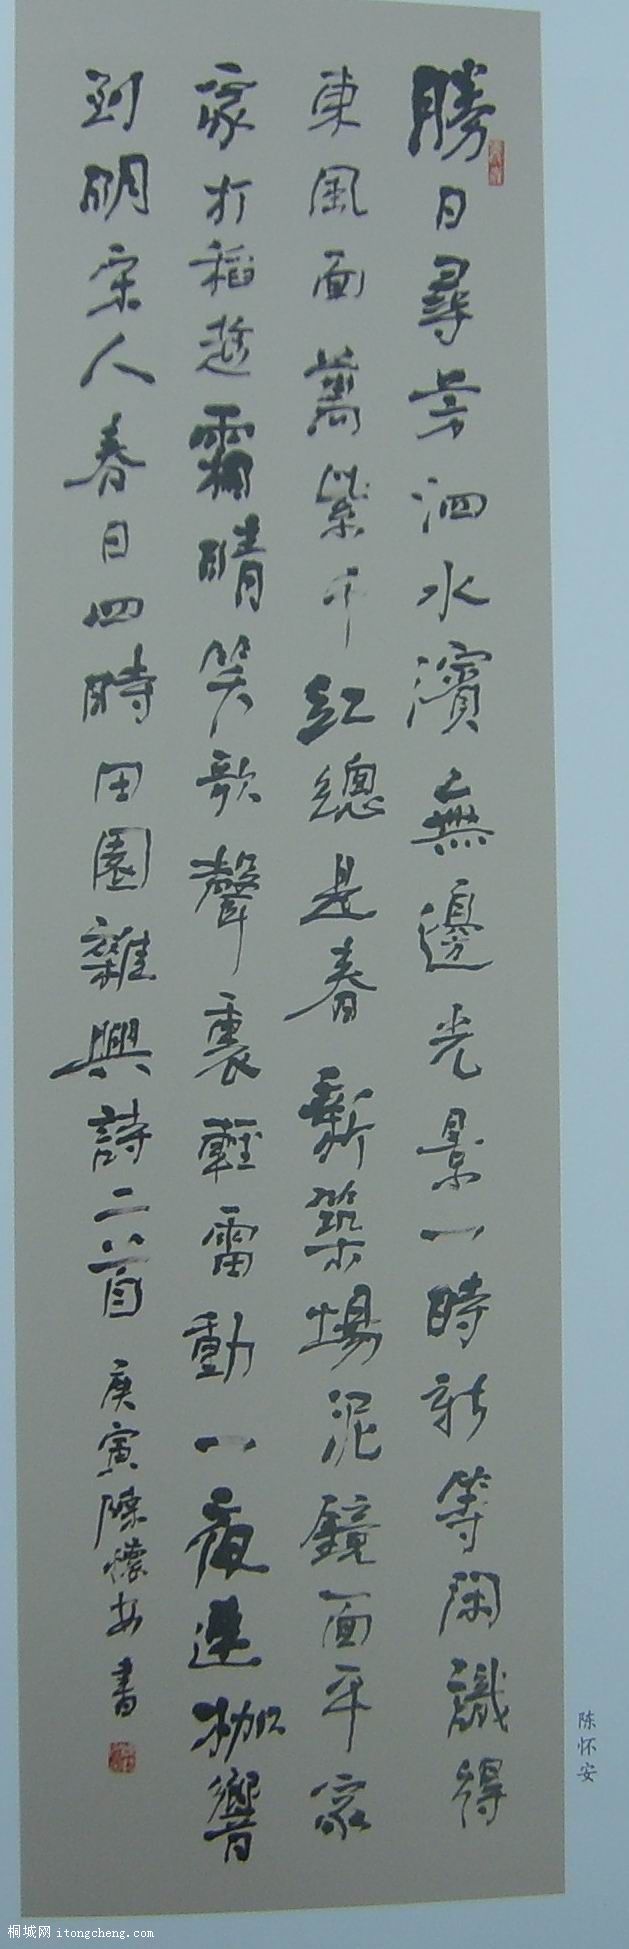 勝日尋芳泗水濱無邊光景一時新等閑識得
東風面萬紫千紅總是春新築場泥鏡面平家
家打稻趁霜晴笑歌聲裏輕雷動一夜連枷響
到明宋人春日四時田園雜興詩二首
庚寅陳懷安書
陈怀安
桐城网 itongcheng.com